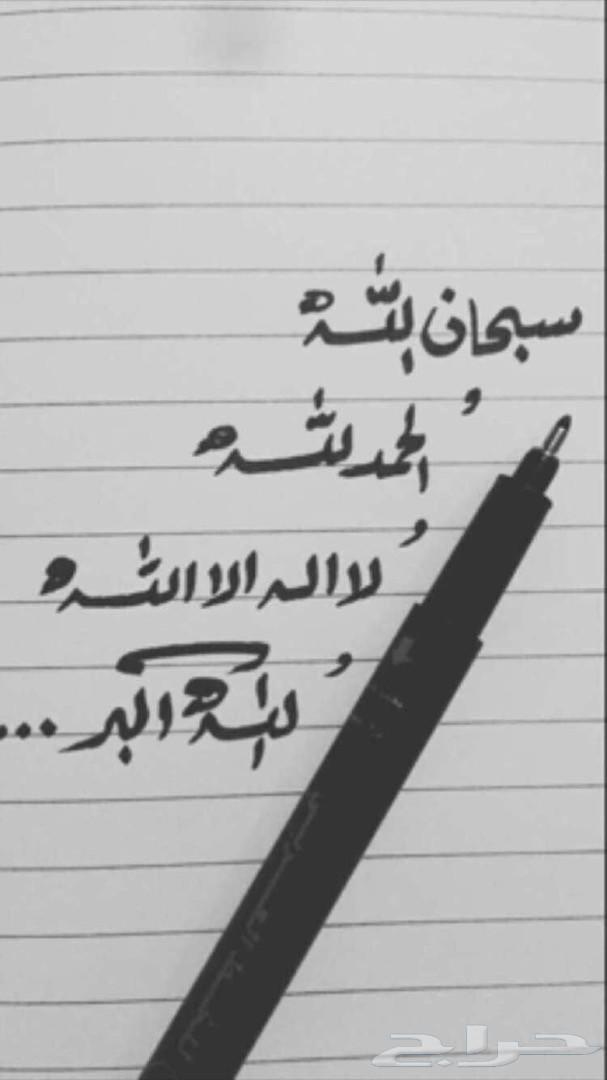 سبحان الله
و
الحمد لله
و
لا اله الا الله
و
الله اكبر ...
للخط العربي
حراج